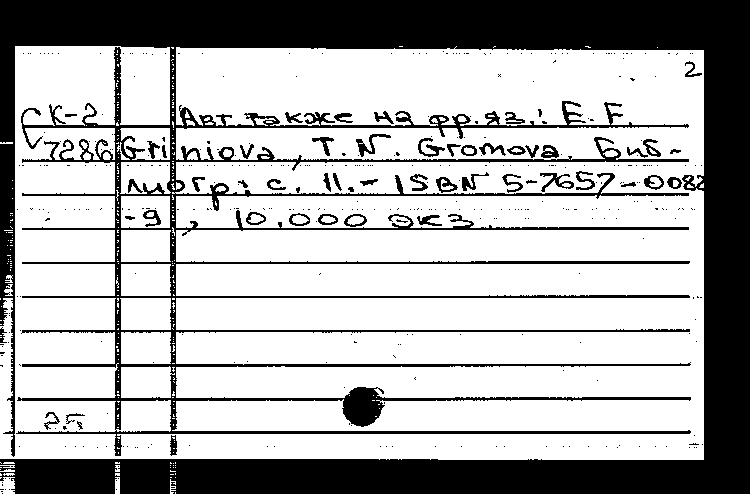 2
К-2 Авт. также на фр. яз.: E. F.
7286 Griniova, T. N. Gromova. Биб-
лиогр.: с. 11. - ISBN 5-7657-0082
-9, 10.000 экз.